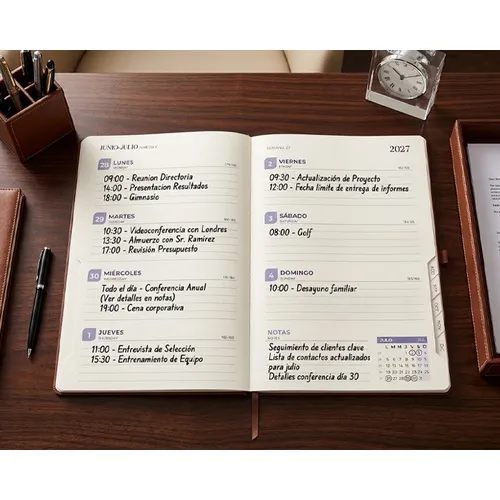 JUNIO-JULIO
28 LUNES
09:00 - Reunion Directoria
14:00 - Presentacion Resultados
18:00 - Gimnasio
29 MARTES
10:30 - Videoconferencia con Londres
13:30 - Almuerzo con Sr. Ramirez
17:00 - Revisión Presupuesto
30 MIÉRCOLES
Todo el día - Conferencia Anual
(Ver detalles en notas)
19:00 - Cena corporativa
1 JUEVES
11:00 - Entrevista de Selección
15:30 - Entrenamiento de Equipo
2027
2 VIERNES
09:30 - Actualización de Proyecto
12:00 - Fecha límite de entrega de informes
3 SÁBADO
08:00 - Golf
4 DOMINGO
10:00 - Desayuno familiar
NOTAS
Seguimiento de clientes clave
Lista de contactos actualizados
para julio
Detalles conferencia día 30
JULIO
L M M J V S D